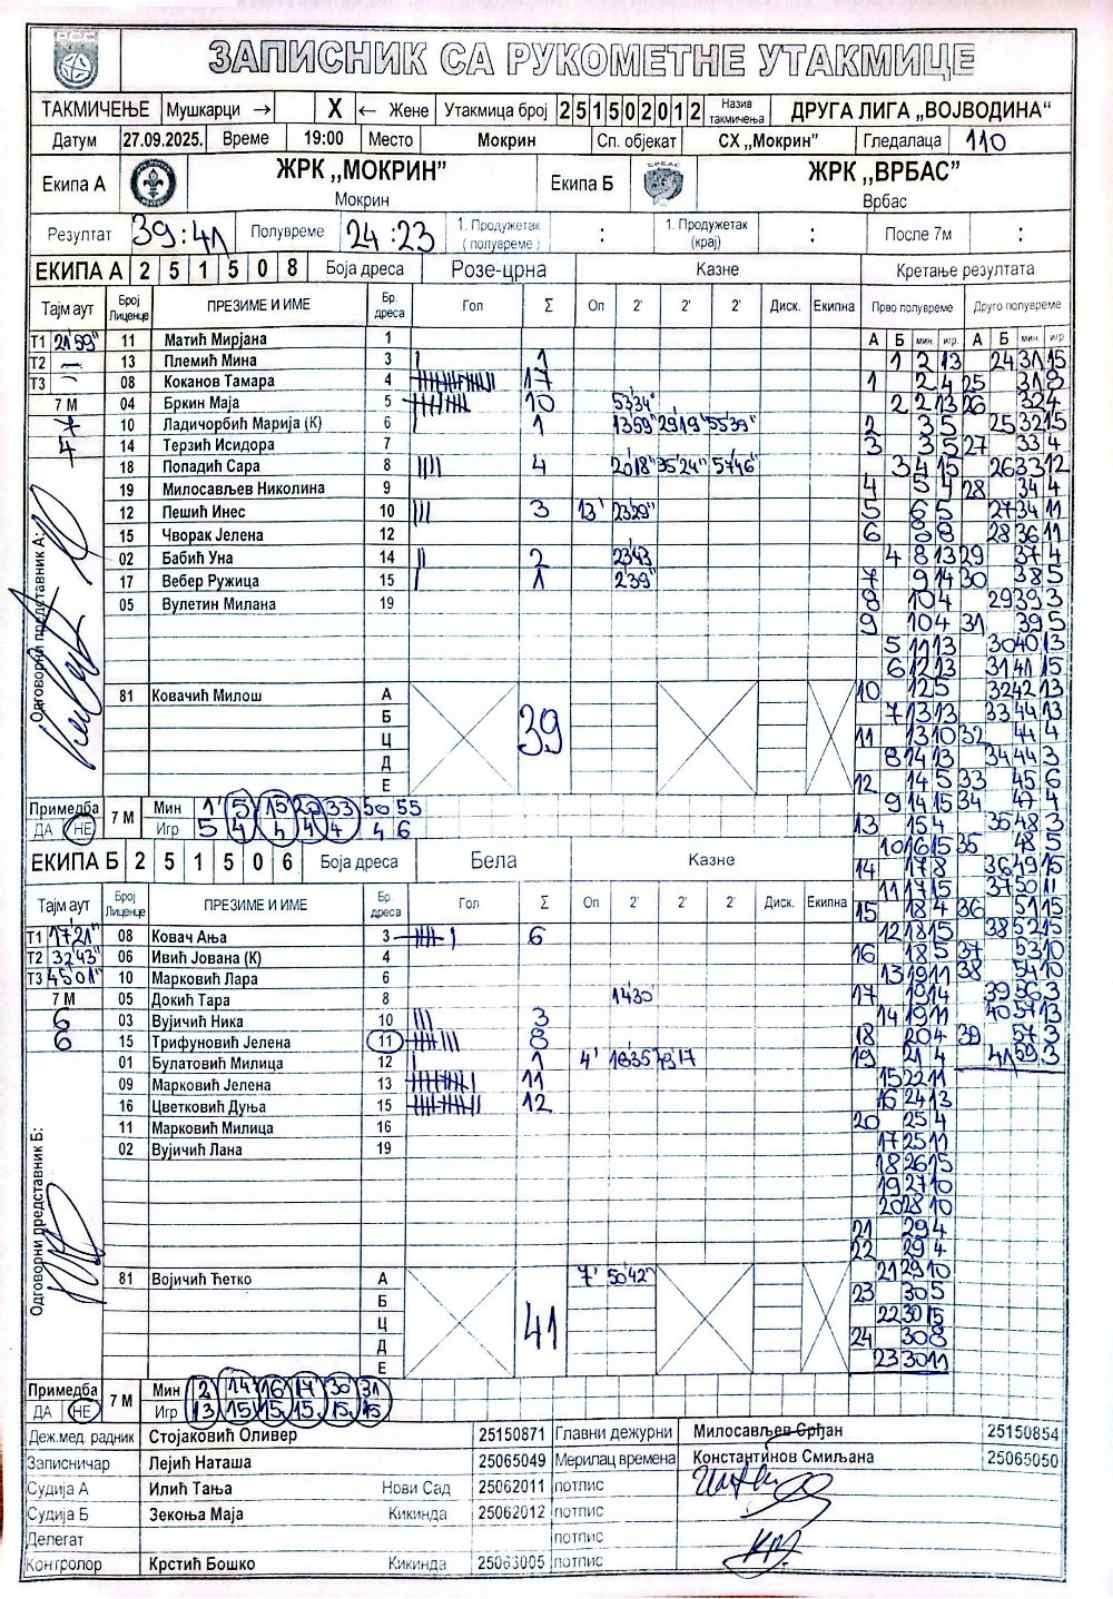 ЗАПИСНИК СА РУКОМЕТНЕ УТАКМИЦЕ
ТАКМИЧЕЊЕ Мушкарци → X ← Жене Утакмица број 251502012 Назив такмичења ДРУГА ЛИГА „ВОЈВОДИНА“
Датум 27.09.2025. Време 19:00 Место Мокрин Сп. објекат СХ „Мокрин" Гледалаца 110
Екипа А ЖРК „МОКРИН" Мокрин Екипа Б ЖРК „ВРБАС" Врбас
Резултат 39:41 Полувреме 24:23 1. Продужетак (полувреме) : 1. Продужетак (крај) : После 7м :
ЕКИПА А 2 5 1 5 0 8 Боја дреса Розе-црна Казне Кретање резултата
Тајм аут Број Лиценце ПРЕЗИМЕ И ИМЕ Бр. дреса Гол Σ Оп 2' 2' 2' Диск. Екипна Прво полувреме Друго полувреме
А Б мин. игр. А Б мин. игр
Т1 21'59" 11 Матић Мирјана 1
Т2 — 13 Племић Мина 3 1
Т3 – 08 Коканов Тамара 4 17
7 М 04 Бркин Маја 5 10 53'34"
7 10 Ладичорбић Марија (К) 6 1 13'59" 29'19" 55'39"
4 14 Терзић Исидора 7
18 Попадић Сара 8 4 20'18" 35'24" 57'46"
19 Милосављев Николина 9
12 Пешић Инес 10 3 13' 23'29"
15 Чворак Јелена 12
02 Бабић Уна 14 2 23'43
17 Вебер Ружица 15 1 2'39"
05 Вулетин Милана 19
Одговорни представник А:
81 Ковачић Милош А
Б
Ц
Д
Е
39
Примедба ДА НЕ 7 М Мин 1' 5 15 23 33 50 55
Игр 5 4 4 4 4 4 6
ЕКИПА Б 2 5 1 5 0 6 Боја дреса Бела Казне
Тајм аут Број Лиценце ПРЕЗИМЕ И ИМЕ Бр. дреса Гол Σ Оп 2' 2' 2' Диск. Екипна
Т1 17'21" 08 Ковач Ања 3 6
Т2 32'43" 06 Ивић Јована (К) 4
Т3 45'01" 10 Марковић Лара 6
7 М 05 Докић Тара 8 14'30"
6 03 Вујичић Ника 10 3
6 15 Трифуновић Јелена 11 8
01 Булатовић Милица 12 1 4' 16'35"
09 Марковић Јелена 13 11
16 Цветковић Дуња 15 12
11 Марковић Милица 16
02 Вујичић Лана 19
Одговорни представник Б:
81 Војичић Ћетко А 7' 50'42"
Б
Ц
Д
Е
41
Примедба ДА НЕ 7 М Мин 2 14 16 17 30 31
Игр 13 15 15 15 15 15
1 2 13
1 2 4
2 2 13
2 3 5
3 3 5
3 4 15
4 5 4
5 6 5
6 8 8
4 8 13
7 9 14
8 10 4
9 10 4
5 11 13
6 12 13
10 12 5
7 13 13
11 13 10
8 14 13
12 14 5
9 14 15
13 15 4
10 16 15
14 17 8
11 17 15
15 18 4
12 18 15
16 18 5
13 19 11
17 19 14
14 19 11
18 20 4
19 21 4
15 22 11
16 24 13
20 25 4
17 25 11
18 26 15
19 27 10
20 28 10
21 29 4
22 29 4
21 29 10
23 30 5
22 30 15
24 30 8
23 30 11
24 31 15
25 31 8
26 32 4
25 32 15
27 33 4
26 33 12
28 34 4
27 34 11
28 36 11
29 37 4
30 38 5
29 39 3
31 39 5
30 40 13
31 41 15
32 42 13
33 44 13
32 44 4
34 44 3
33 45 6
34 47 4
35 48 3
35 48 5
36 49 15
37 50 11
36 51 15
38 52 15
37 53 10
38 54 10
39 56 3
40 57 13
39 57 3
41 59 3
Деж.мед. радник Стојаковић Оливер 25150871 Главни дежурни Милосављев Срђан 25150854
Записничар Лејић Наташа 25065049 Мерилац времена Константинов Смиљана 25065050
Судија А Илић Тања Нови Сад 25062011 потпис
Судија Б Зекоња Маја Кикинда 25062012 потпис
Делегат потпис
Контролор Крстић Бошко Кикинда 25063005 потпис